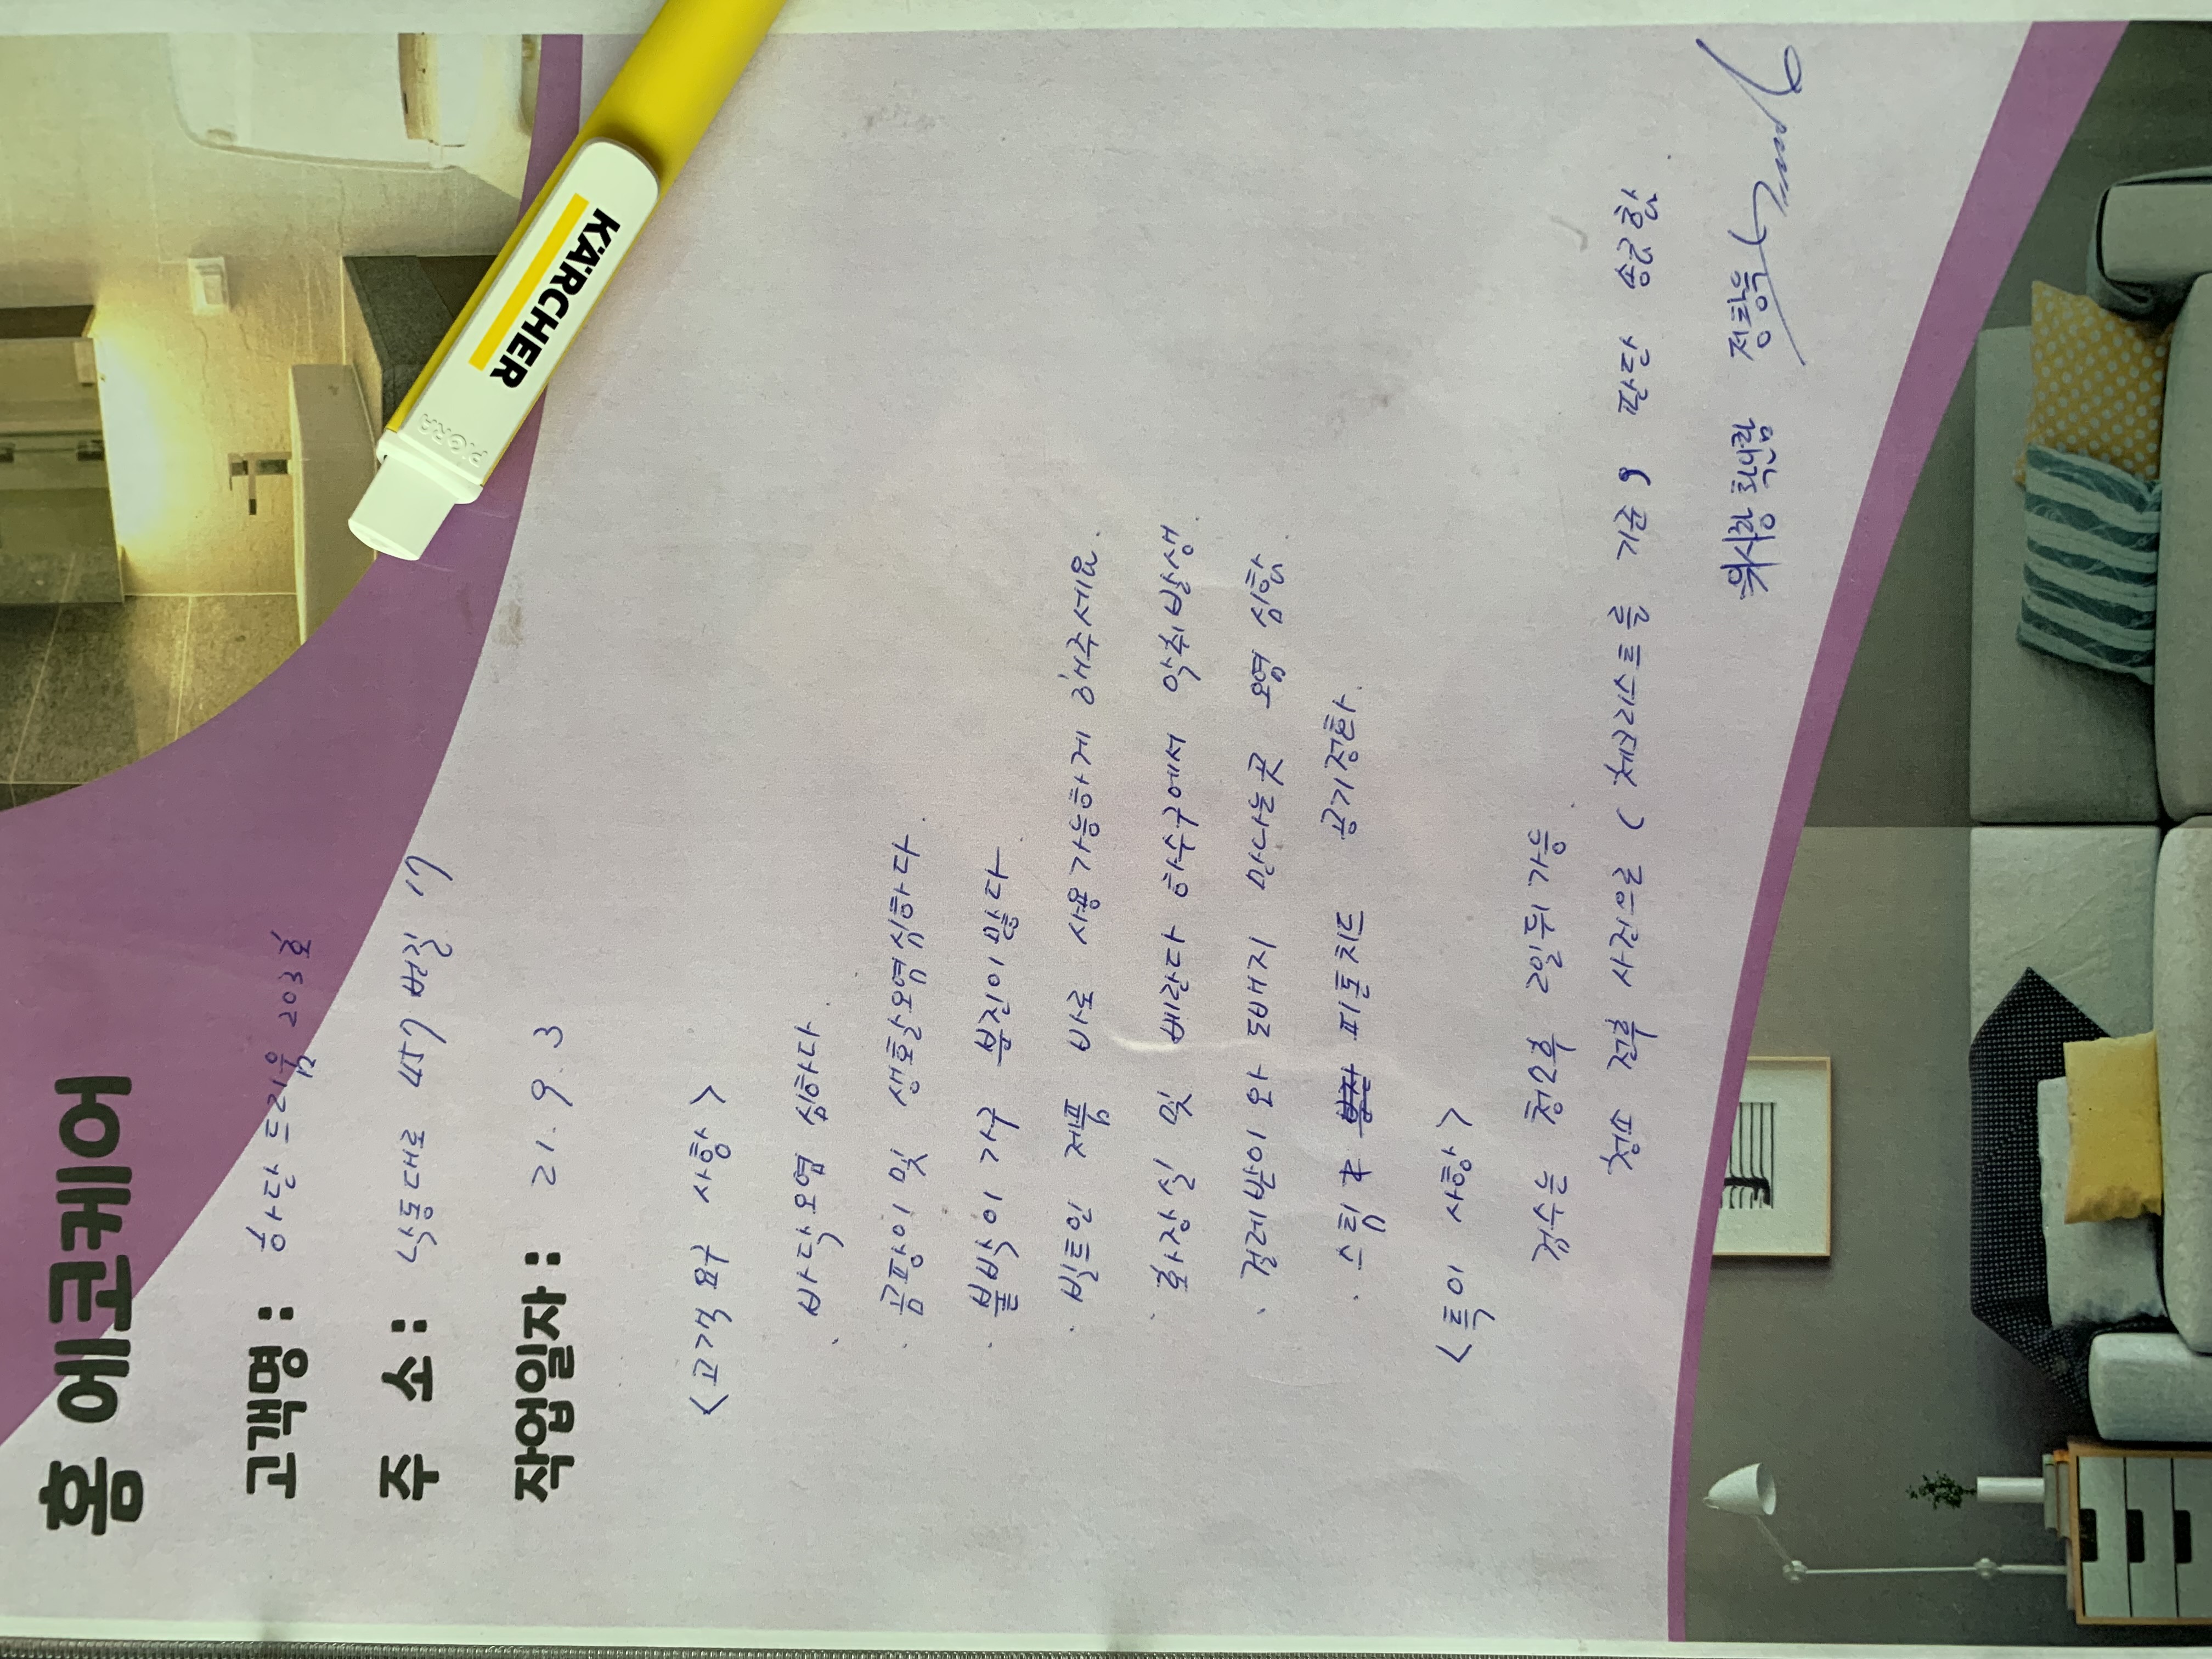 홈 에코케어
고객명 : 하단 드리움 203호
주 소 : 낙동대로 457번길 17
작업일자 : 21. 9. 3
<고객 요구 사항>
· 바닥오염 심하다.
· 곰팡이 및 생활오염심하다.
· 붙박이 가구 분진이 많다
· 빌트인 제품 바로 사용가능하게 해주세요.
· 화장실 및 베란다 하수구에서 악취발생.
· 걸레받이 와 도배지 만나는곳 오염 심함.
· 스팀 & 피톤치드 공기정화.
<특이 사항>
검수는 청소후 2일뒤 가능.
청소 전후 사진으로 (체크리스트를 기준, 판단 송군함.
현장팀 정창욱
KÄRCHER
PIGRA